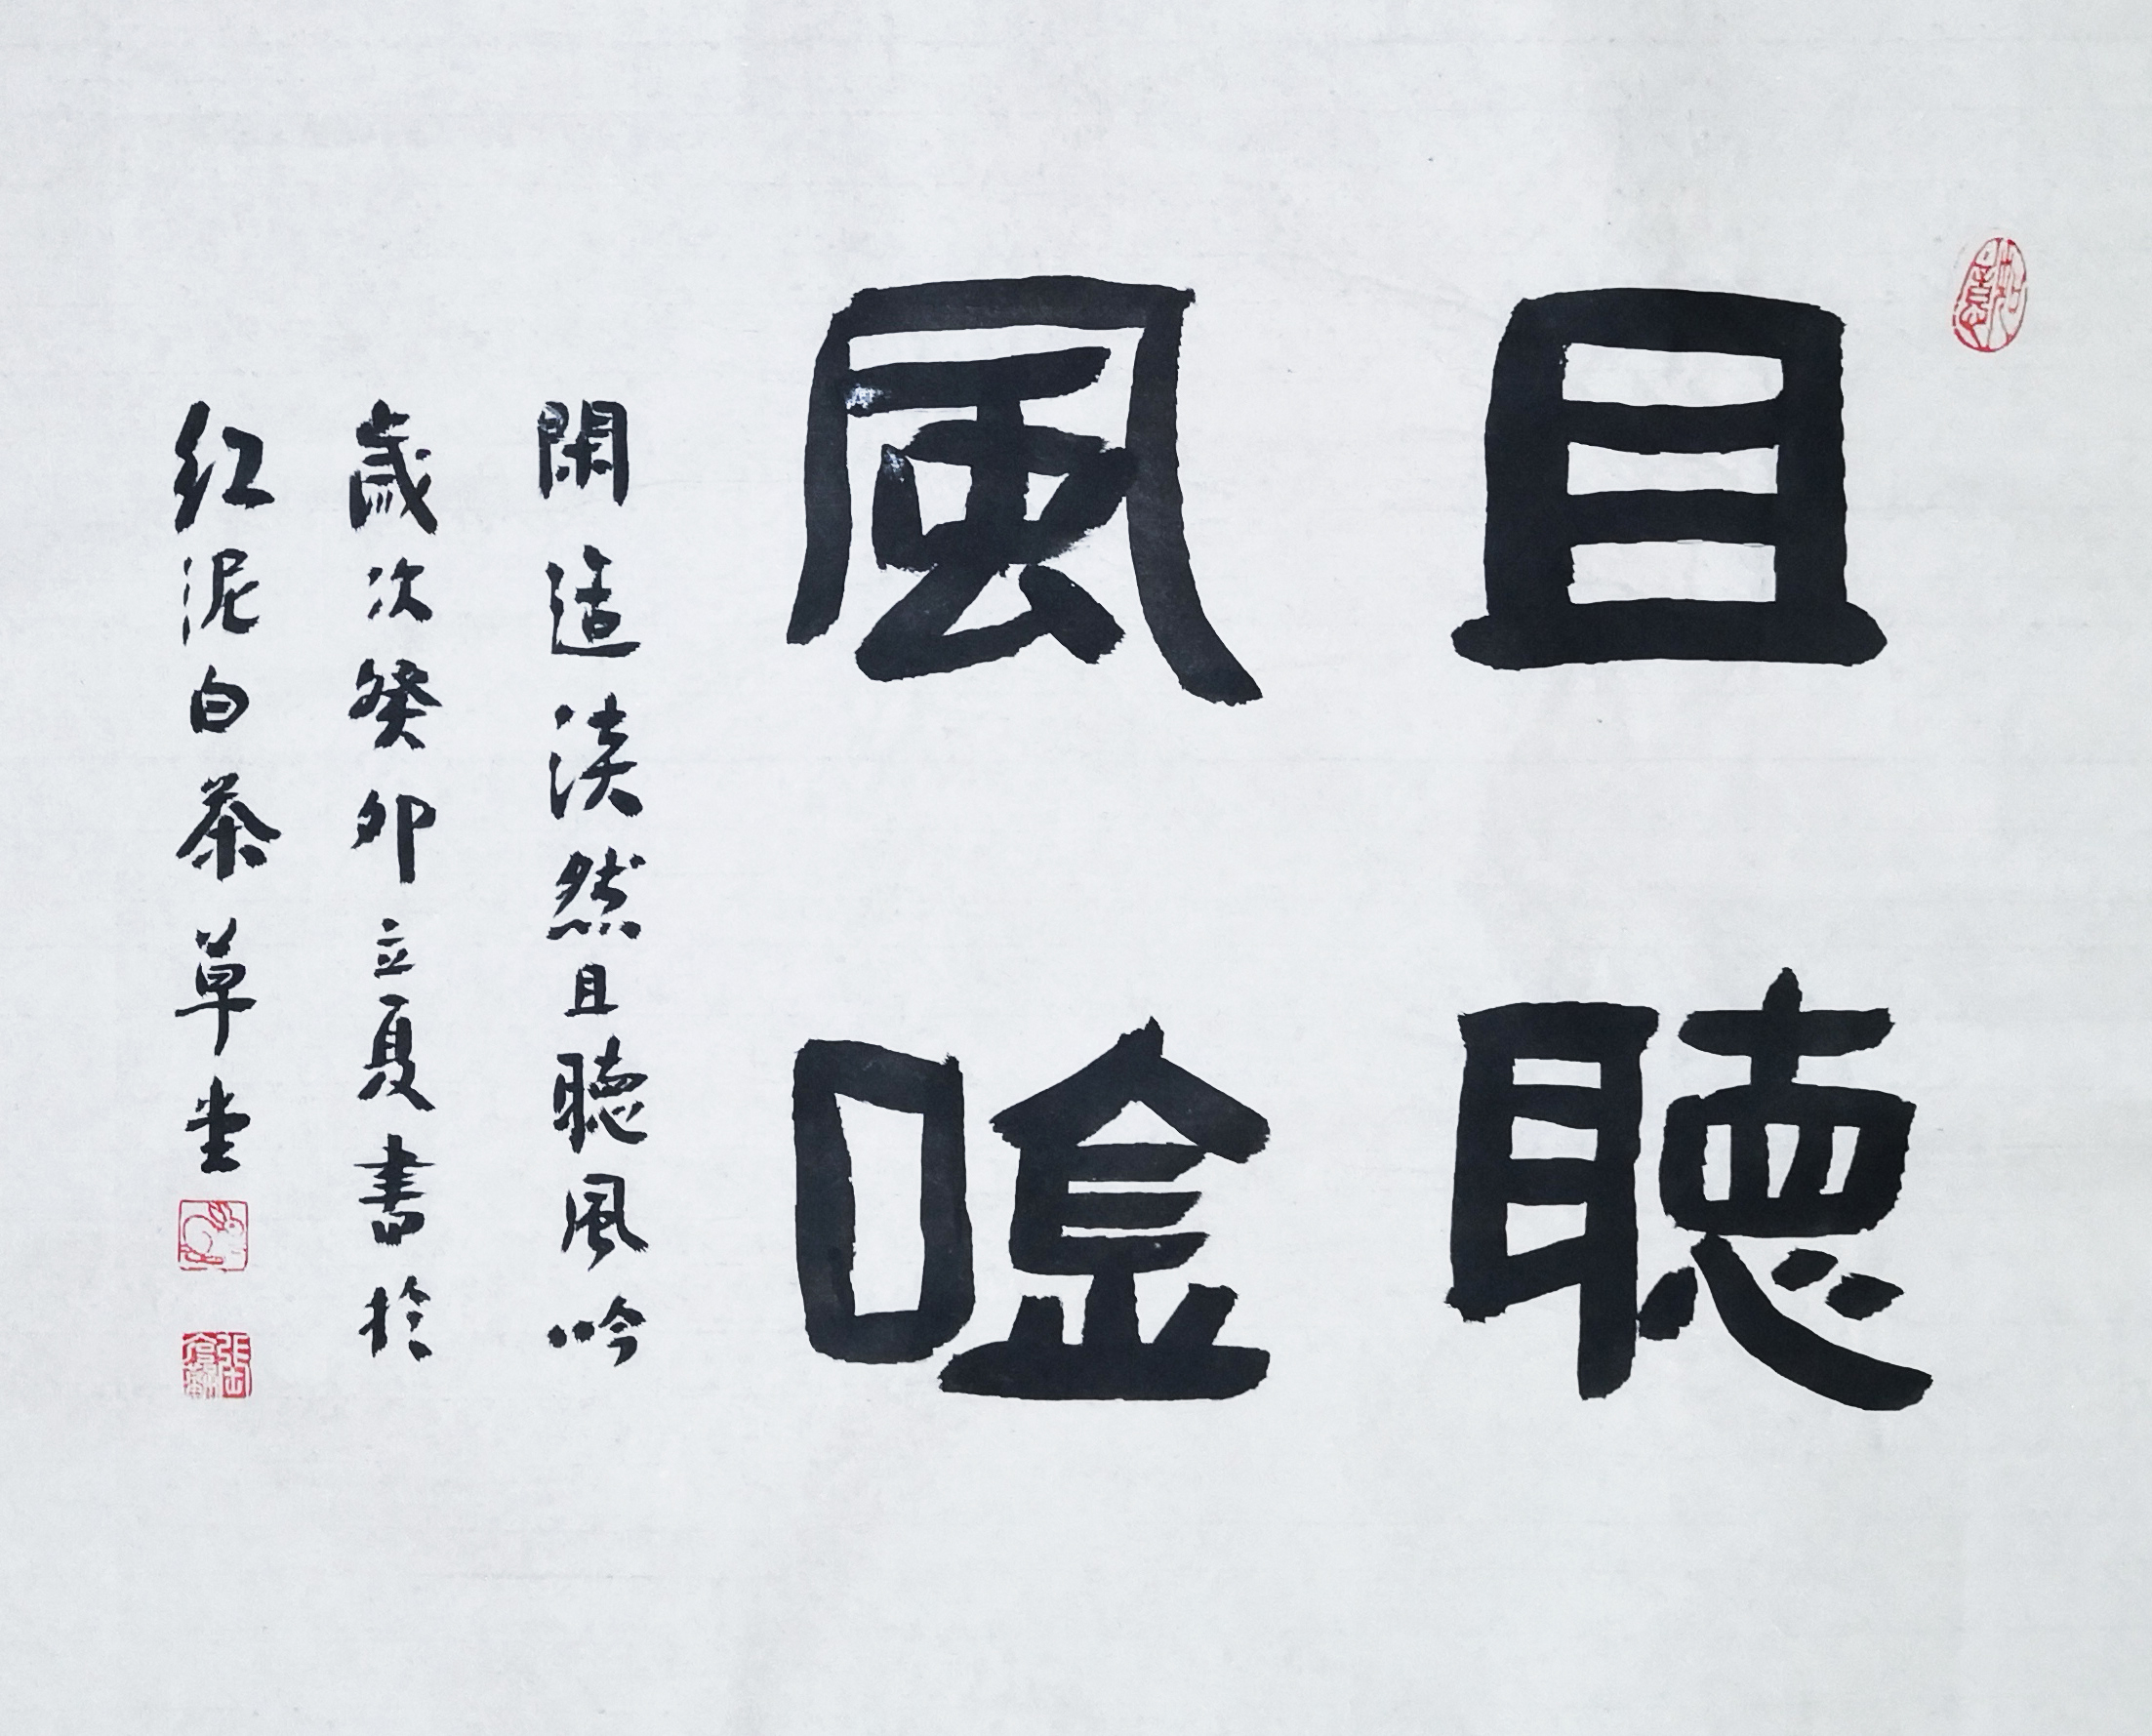 且聽
風唫
閑适淡然且聽風吟
歲次癸卯立夏書於
红泥白茶草堂